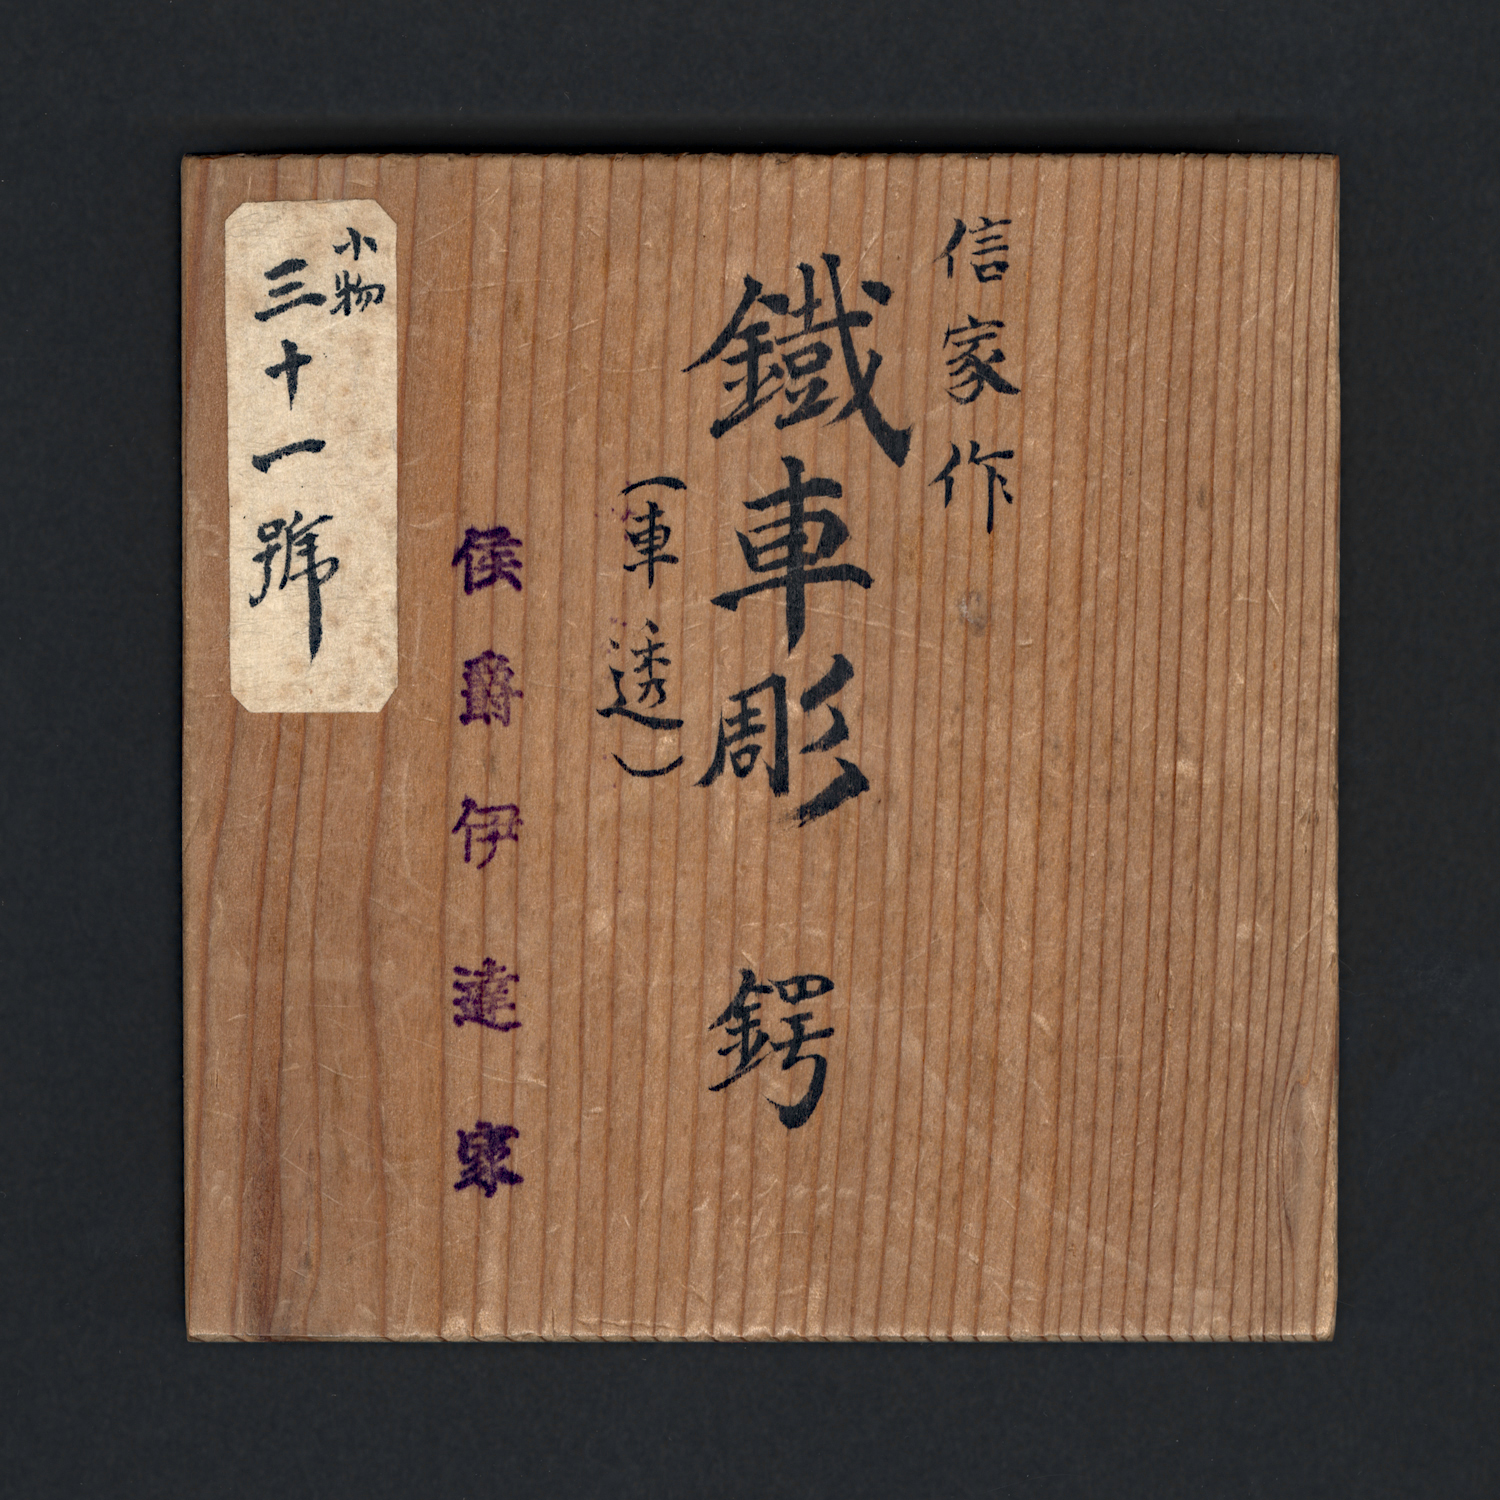 信家作
鐵車彫 鍔
(車透)
侯爵伊達家
小物
三十一號